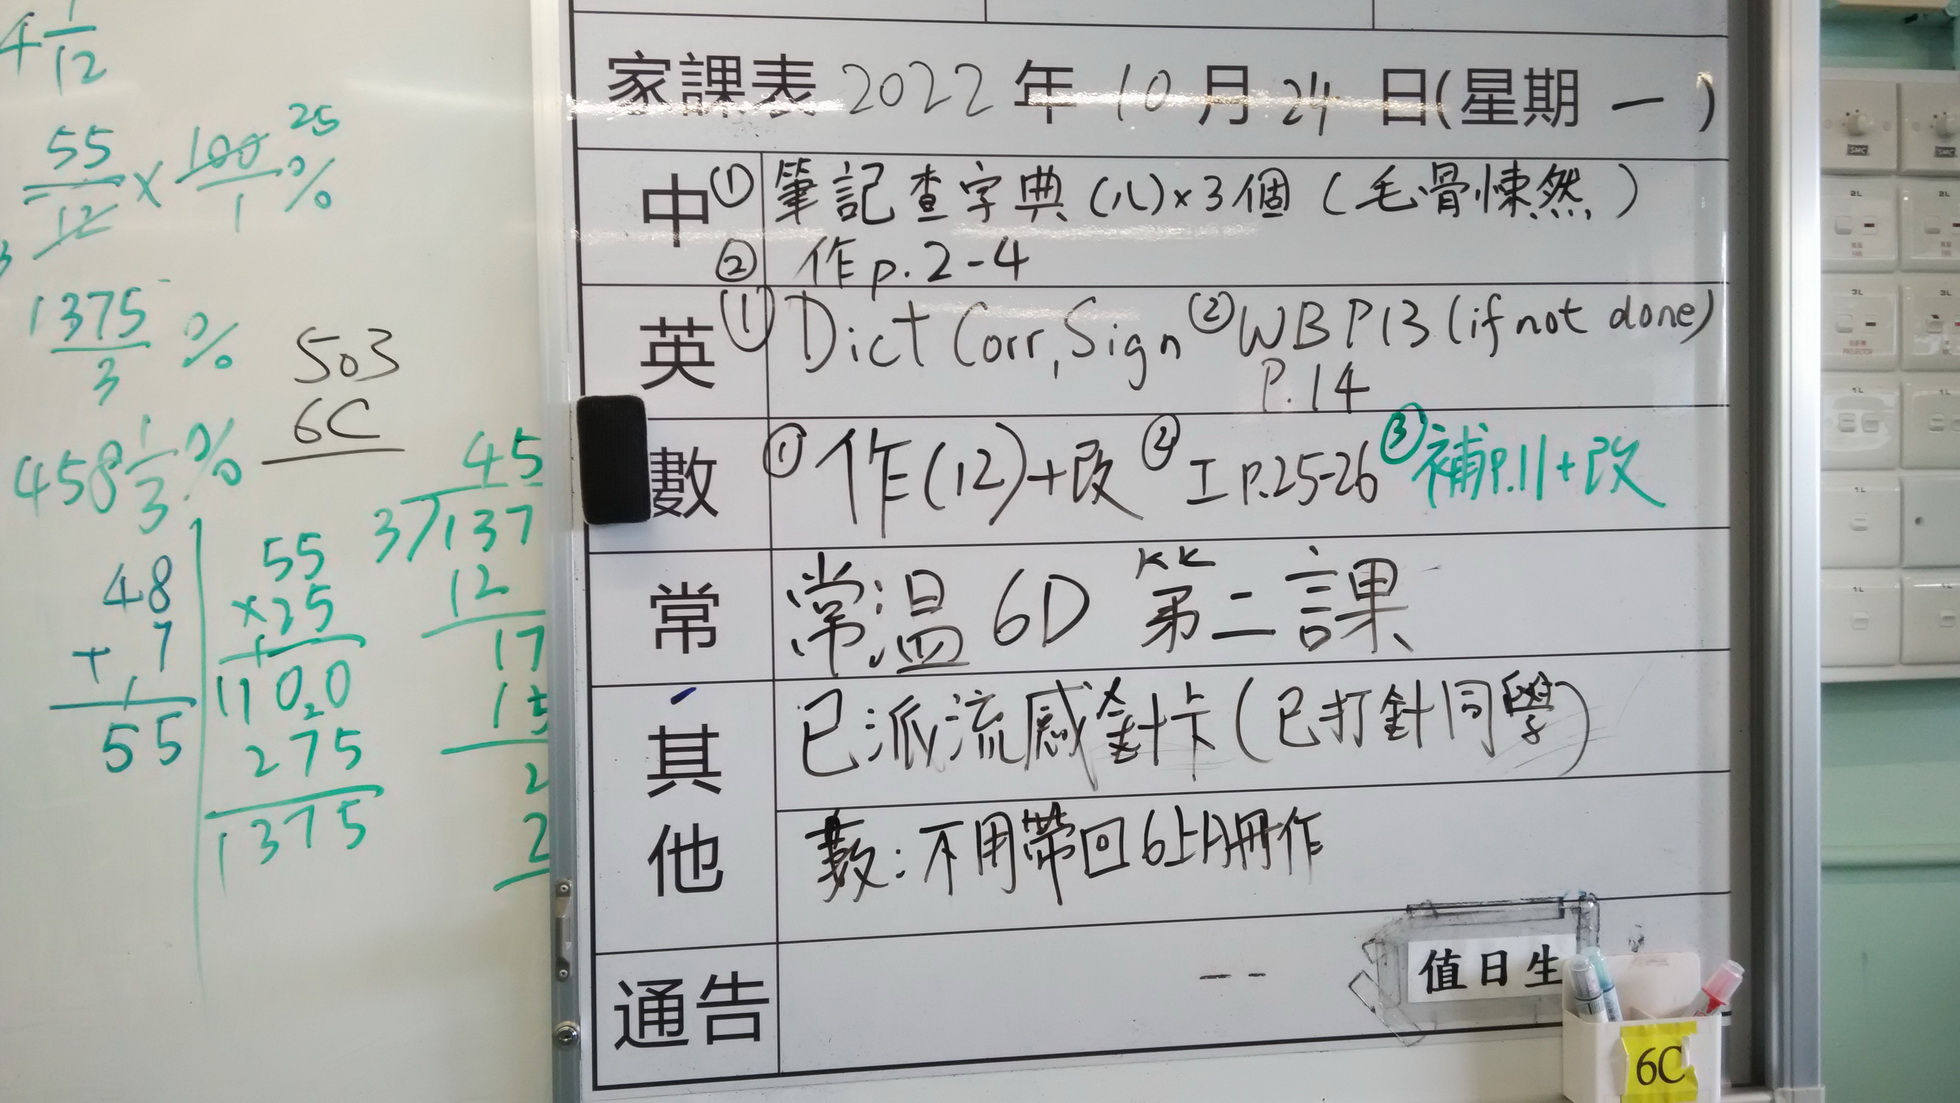 4 1/12
55/12 × 100/1 %
25
3
1375/3 %
458 1/3 %
503
6C
48
+ 7
55
55
×25
1100
275
1375
45
3)137
12
17
15
2
2
家課表 2022 年 10 月 24 日(星期 一 )
中 ① 筆記查字典 (八)×3個 (毛骨悚然)
② 作 p.2-4
英 ① Dict Corr, Sign ② WB P13 (if not done)
P.14
數 ① 作(12)+改 ② 工 P.25-26 ③ 補P.11+改
常 常溫 6D 第二課
其他 已派流感針卡(已打針同學)
數:不用帶回6上A冊作
通告 --
值日生
6C